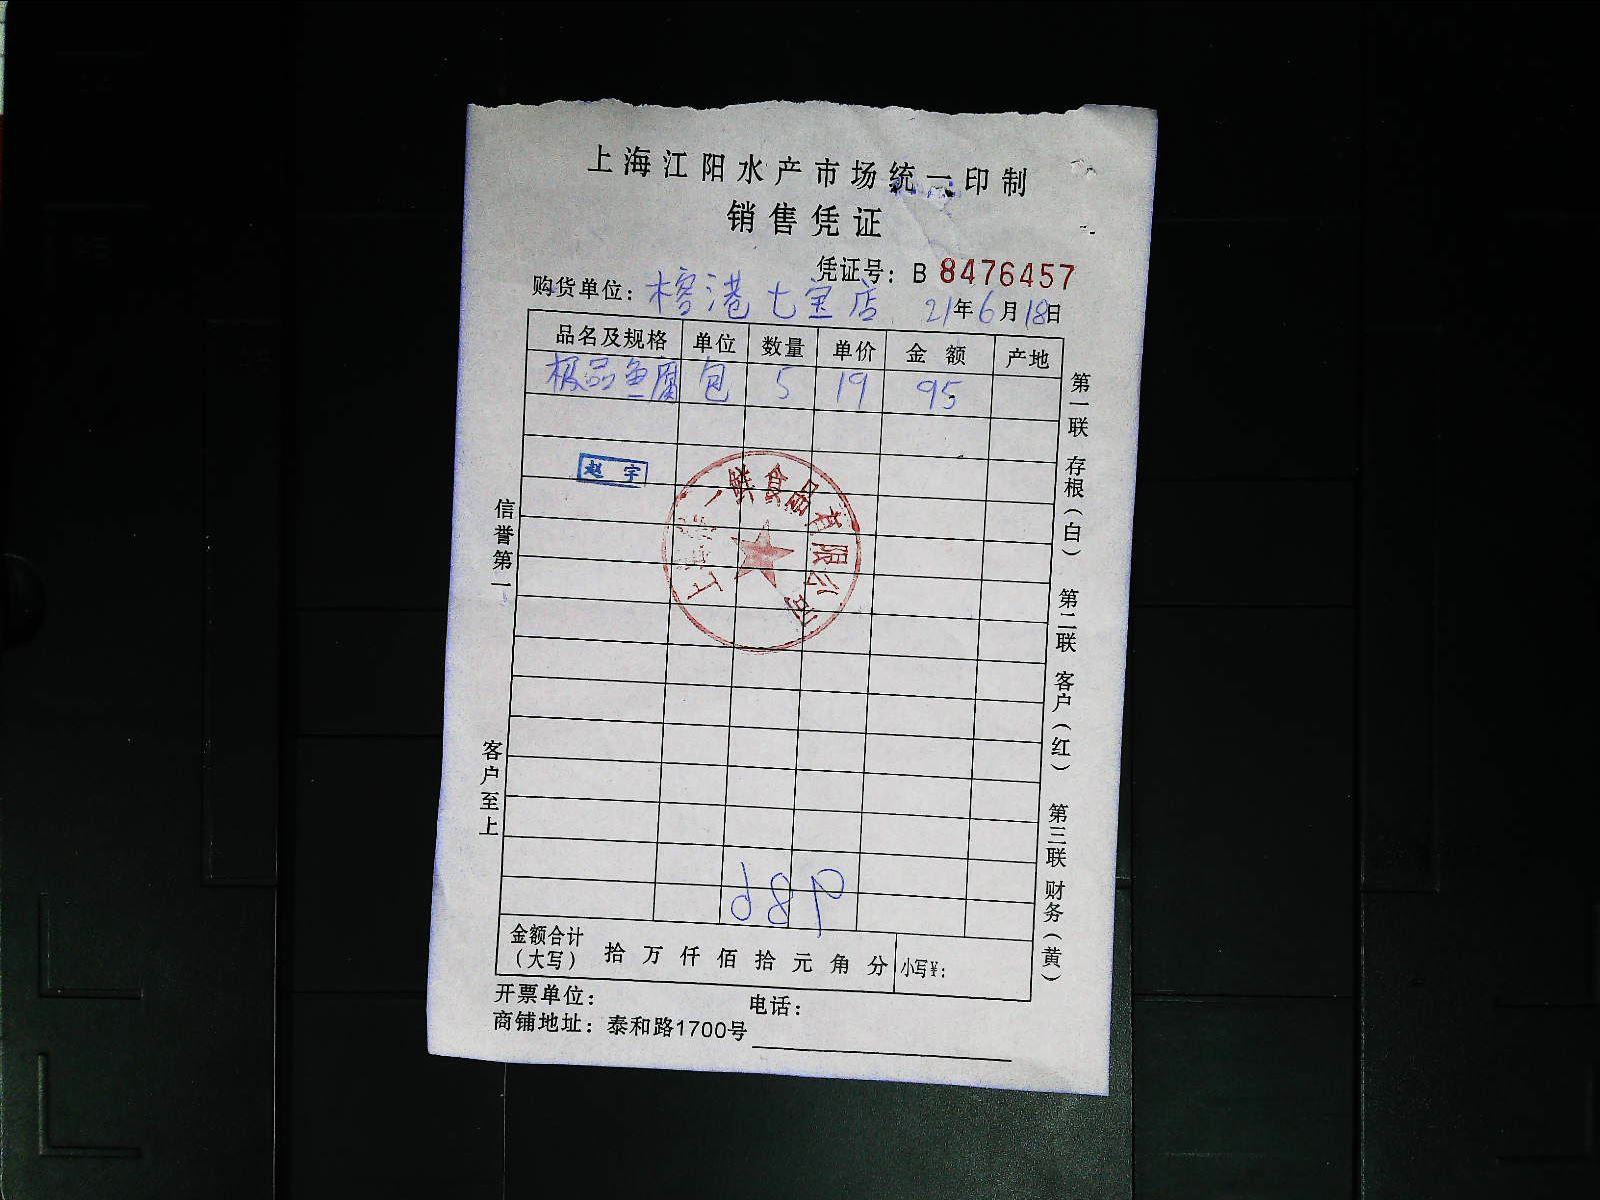 上海江阳水产市场统一印制
销售凭证
凭证号：B 8476457
购货单位：榕港七宝店 21年6月18日
品名及规格 单位 数量 单价 金额 产地
极品鱼腐 包 5 19 95
赵宇
一鲜食品有限公司
信誉第一
客户至上
第一联 存根（白） 第二联 客户（红） 第三联 财务（黄）
金额合计（大写） 拾 万 仟 佰 拾 元 角 分 小写¥：
开票单位： 电话：
商铺地址：泰和路1700号